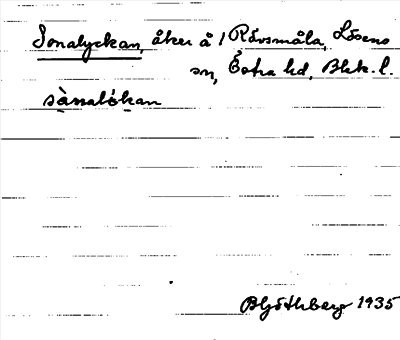 Sonalyckan, åker å 1 Rävsmåla, Lösens
sn, Östra hd, Blek. l.
sànalókan
1935